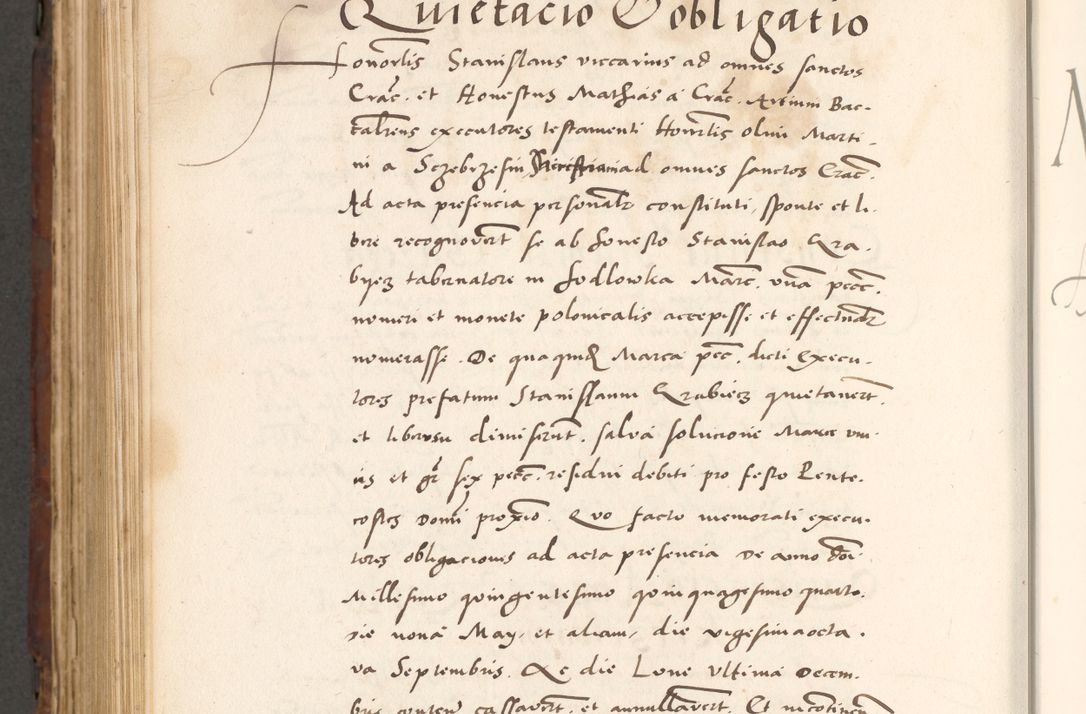 Quietacio Et obligatio
Honorlis Stanislaus viccarius ad omnes sanctos
Crac. et Honestus Mathias a Crac. Artium Bac-
calrens executores testamenti Honrlis olim Marti-
ni a Sczebrzesin ad omnes sanctos Crac.
Ad acta presencia personalr constituti, sponte et li-
bere recognovert se ab honesto Stanislao Gra-
byez tabernatore in Jodlowka Marc. vna pecc.
numeri et monete polonicalis accepisse et effectualr
numerasse. De qua quid Marca pecc. dicti Execu-
tores prefatum Stanislaum Grabiez quietavert.
et liberum dimiserunt. salva solucione Marce vni-
us et gr sex pecc. residui debiti pro festo Pente-
costes Domi proxio. Quo facto memorati execu-
tores obligaciones ad acta presencia De anno doi
Millesimo quingentesimo quinquagesimo quarto.
die nona May, et aliam, die vigesima octa-
va Septembris. Ac die Lune Ultima Decem-
bris conten cassavert. et annullavert. Et